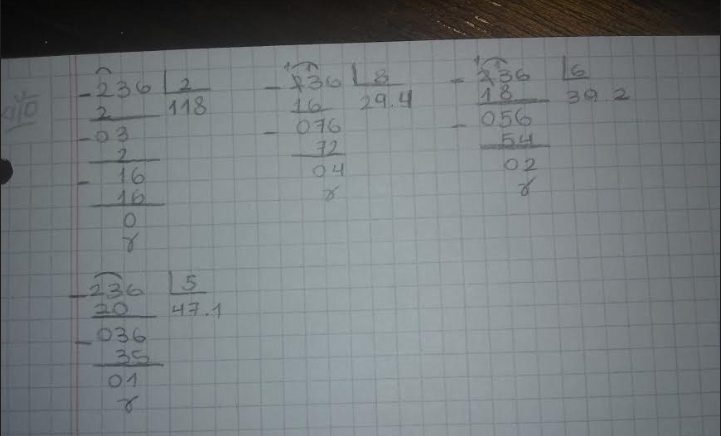 -236 | 2
2 118
-03
2
-16
16
0
r
-236 | 8
16 29.4
-076
72
04
r
-236 | 6
18 39 2
-056
54
02
r
-236 | 5
20 47.1
-036
35
01
r